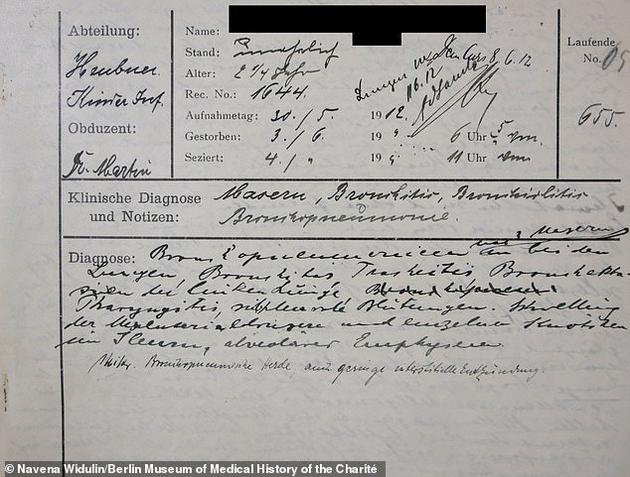 Abteilung:
Heubner
Kinder Inf.
Obduzent:
Dr. Martin
Name:
Stand:
Alter: 2 1/4 Jahr
Rec. No.: 1644.
Aufnahmetag: 30./5. 1912.
Gestorben: 3./6. 19 " 6 Uhr 5 Vm.
Seziert: 4./ " 19 " 11 Uhr Vm
Laufende
No.
655.
Klinische Diagnose
und Notizen:
Masern, Bronchitis, Bronchiolitis
Bronchopneumonie.
Diagnose: Bronchopneumonieen nach Masern in beiden
Lungen Bronchitis Tracheitis Bronchekta-
sien der linken Lunge
Pharyngitis, subpleurale Blutungen. Schwellung
der Mesenterialdrüsen und einzelner Knötchen
im Ileum, alveolares Emphysem
Mikr. Bronchopneumonische Herde, auch geringe interstitielle Entzündung.
© Navena Widulin/Berlin Museum of Medical History of the Charité